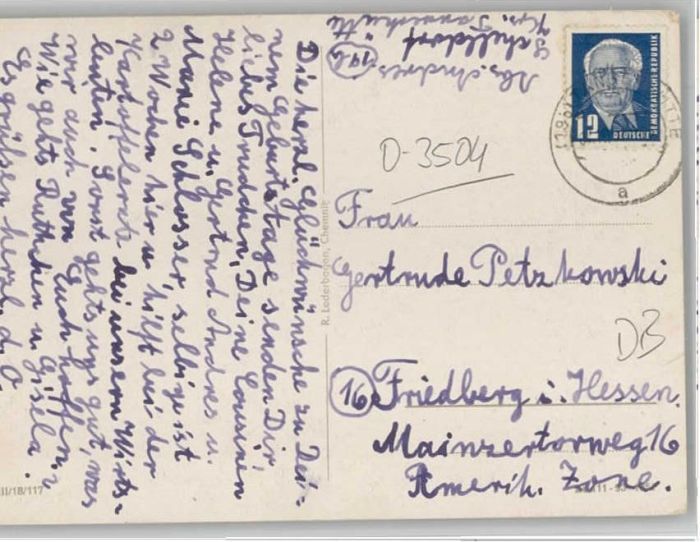 Die herzl. Glückwünsche zu Dei-
nem Geburtstage senden Dir
liebes Trudchen, Deine Cousinen
Helene u. Gertrud Andres u.
Marie Schlosser, selbige ist
2 Wochen hier u. hilft bei der
Kartoffelernte bei unsern Wirts-
leuten. Sonst gehts uns gut, was
wir auch von Euch hoffen.
Wie gehts Ruthchen u. Gisela.
Es grüßen herzl. d. O.
Abs. Andres
(19b) Schilldorf
Kr.
12
DEUTSCHE
DEMOKRATISCHE REPUBLIK
a
D-3504
Frau
Gertrude Petzkowski
DB
(16) Friedberg i. Hessen.
Mainzertorweg 16
Amerik. Zone.
R. Lederbogen, Chemnitz
II/18/117